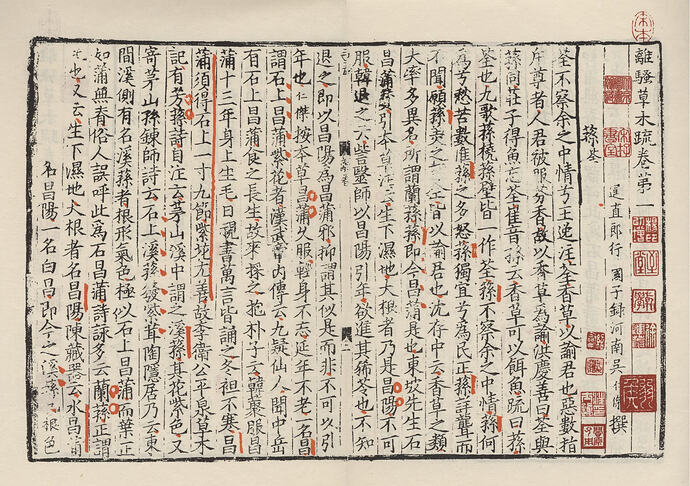 離騷草木疏卷第一
通直郎行國子錄河南吳仁傑撰
蓀荃
荃不察余之中情兮王逸注荃香草以諭君也惡數指
斥尊者人君被服芬香故以香草為諭洪慶善曰荃與
蓀同莊子得魚忘荃崔音孫云香草可以餌魚疏曰蓀
荃也九歌蓀橈蓀壁皆一作荃蓀不察余之中情蓀何
為兮愁苦數惟蓀之多怒蓀獨宜兮為民正蓀詳聾而
不聞願蓀美之可完皆以諭君也沈存中云香草之類
大率多異名所謂蘭蓀蓀即今昌蒲是也東坡先生石
昌蒲贊引本草注云生下濕地大根者乃是昌陽不可
服韓退之云訾醫師以昌陽引年欲進其狶苓也不知
退之即以昌陽為昌蒲邪抑謂其似是而非不可以引
年也仁傑按本草昌蒲久服輕身不忘延年不老一名昌
謂石上昌蒲紫花者漢武帝內傳云九疑仙人聞中岳
有石上昌蒲食之長生故來採之抱朴子云韓衆服昌
蒲十三年身上生毛日視書萬言皆誦之冬袒不寒昌
蒲須得石上一寸九節紫花尤善故李衛公平泉草木
記有芳蓀詩自注云茅山溪中謂之溪蓀其花紫色又
寄茅山孫鍊師詩云石上溪蓀發紫茸陶隱居乃云東
間溪側有名溪蓀者根形氣色極似石上昌蒲而葉正
如蒲無脊俗人誤呼此為石昌蒲詩詠多云蘭蓀正謂
此也又云生下濕地大根者名昌陽陳藏器云水昌蒲
名昌陽一名白昌即今之溪蓀根色